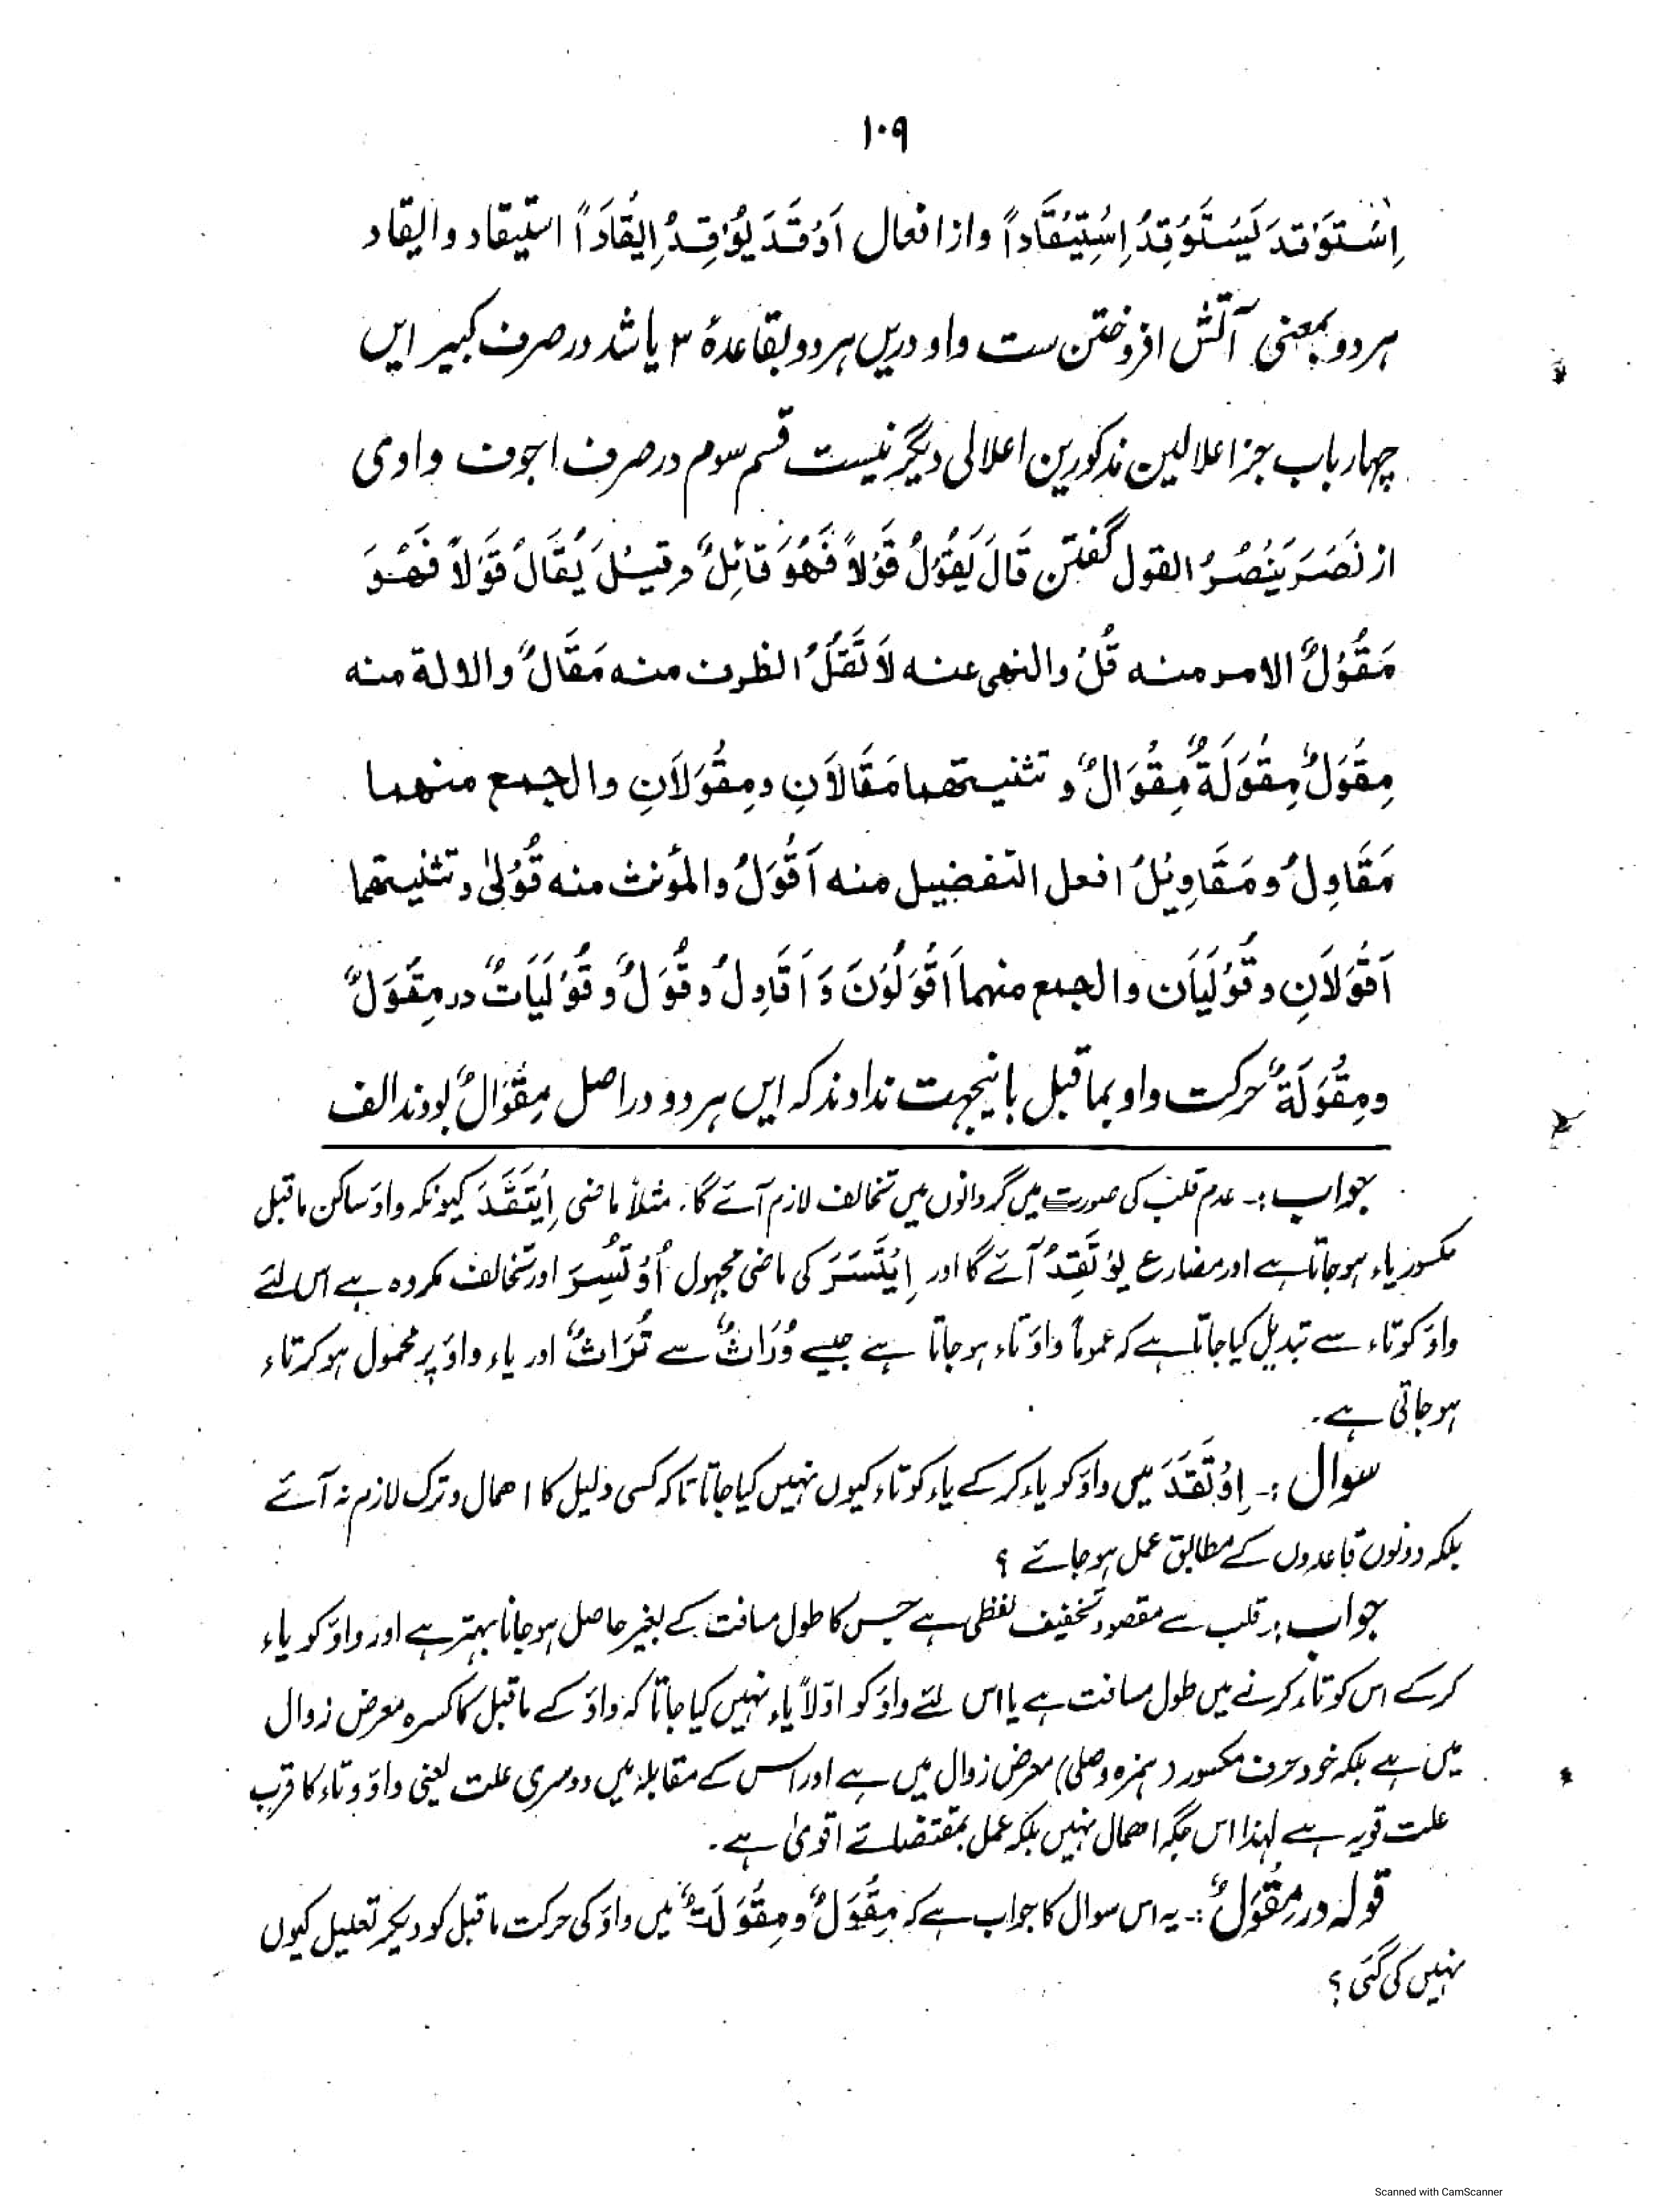 ١٠٩
اِسْتَوْقَدَ يَسْتَوْقِدُ اِسْتِيْقَادًا واز افعال اَوْقَدَ يُوْقِدُ اِيْقَادًا استیقاد وایقاد
ہر دو بمعنی آتش افروختن ست واو دریں ہر دو بقاعدۂ ۳ یا شد در صرف کبیر ایں
چہار باب جز اعلالین مذکورین اعلالی دیگر نیست قسم سوم در صرف اجوف واوی
از نَصَرَ يَنْصُرُ القول گفتن قَالَ يَقُوْلُ قَوْلًا فَهُوَ قَائِلٌ وقِيْلَ يُقَالُ قَوْلًا فَهُوَ
مَقُوْلٌ الامر منه قُلْ والنهى عنه لَا تَقُلْ الظرف منه مَقَالٌ والالة منه
مِقْوَلٌ مِقْوَلَةٌ مِقْوَالٌ و تثنيتهما مَقَالَانِ ومِقْوَلَانِ والجمع منهما
مَقَاوِلُ ومَقَاوِيْلُ افعل التفضيل منه اَقْوَلُ والمؤنث منه قُوْلىٰ وتثنيتهما
اَقْوَلَانِ وقُوْلَيَانِ والجمع منهما اَقْوَلُوْنَ وَاَقَاوِلُ وقُوَلٌ وقُوْلَيَاتٌ در مِقْوَلٌ
ومِقْوَلَةٌ حرکت واو بما قبل بانیجہت ندادند کہ ایں ہر دو در اصل مِقْوَالٌ بودند الف
جواب :۔ عدم قلب کی صورت میں گردانوں میں تخالف لازم آئے گا۔ مثلاً ماضی اِيْتَقَدَ کیونکہ واؤ ساکن ماقبل
مکسور یاء ہو جاتا ہے اور مضارع يَوْتَقِدُ آئے گا اور اِيْتَسَرَ کی ماضی مجہول اُوْتُسِرَ اور تخالف مکروہ ہے اس لئے
واؤ کو تاء سے تبدیل کیا جاتا ہے کہ عموماً واؤ تاء ہو جاتا ہے جیسے وُرَاثٌ سے تُرَاثٌ اور یاء واؤ پر محمول ہو کر تاء
ہو جاتی ہے۔
سوال :۔ اِوْتَقَدَ میں واؤ کو یاء کر کے یاء کو تاء کیوں نہیں کیا جاتا تاکہ کسی دلیل کا اھمال و ترک لازم نہ آئے
بلکہ دونوں قاعدوں کے مطابق عمل ہو جائے ؟
جواب :۔ قلب سے مقصود تخفیف لفظی ہے جس کا طول مسافت کے بغیر حاصل ہو جانا بہتر ہے اور واؤ کو یاء
کر کے اس کو تاء کرنے میں طول مسافت ہے یا اس لئے واؤ کو اوّلاً یاء نہیں کیا جاتا کہ واؤ کے ماقبل کا کسرہ معرض زوال
میں ہے بلکہ خود حرف مکسور (ہمزہ وصلی) معرض زوال میں ہے اور اس کے مقابلہ میں دوسری علت یعنی واؤ و تاء کا قرب
علت قویہ ہے لہذا اس جگہ اھمال نہیں بلکہ عمل بمقتضائے اقویٰ ہے۔
قولہ در مِقْوَلٌ :۔ یہ اس سوال کا جواب ہے کہ مِقْوَلٌ و مِقْوَلَةٌ میں واؤ کی حرکت ماقبل کو دیکر تعلیل کیوں
نہیں کی گئی ؟
Scanned with CamScanner